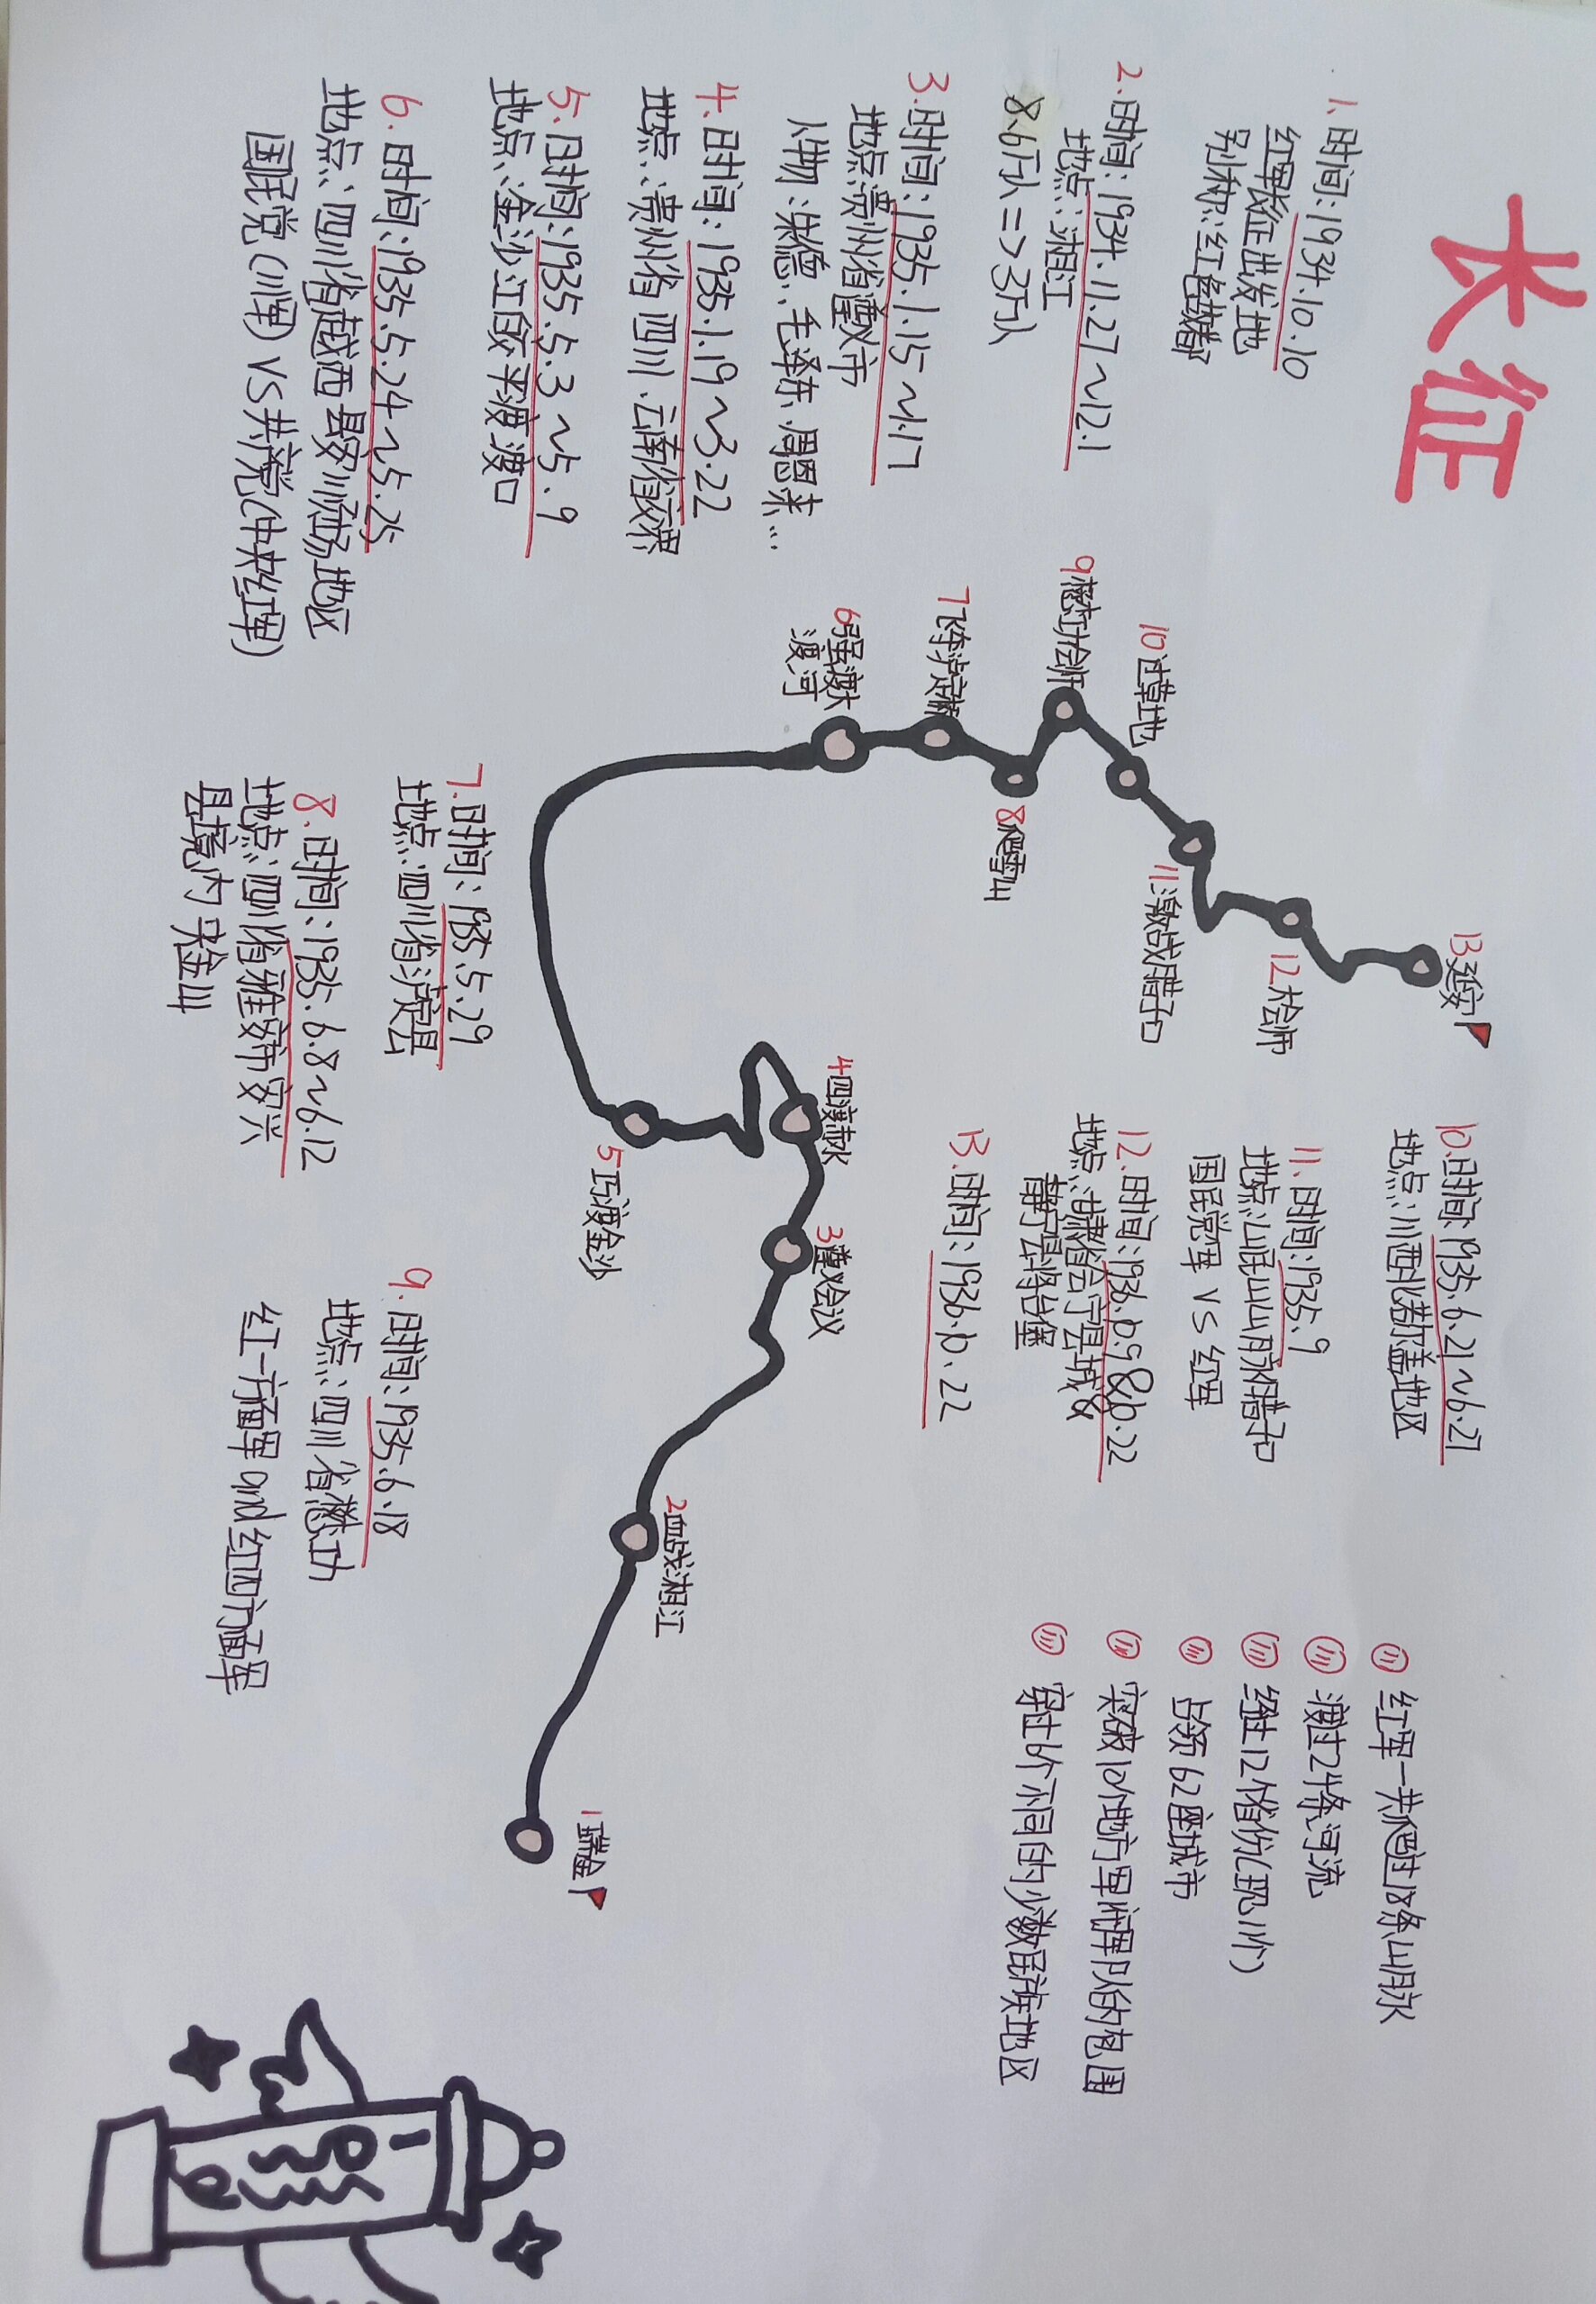 长征
1.时间:1934.10.10
红军长征出发地
别称:红色故都
2.时间:1934.11.27~12.1
地点:湘江
8.6万人=>3万人
3.时间:1935.1.15~1.17
地点:贵州省遵义市
人物:朱德、毛泽东、周恩来…
4.时间:1935.1.19~3.22
地点:贵州省 四川、云南省交界
5.时间:1935.5.3~5.9
地点:金沙江皎平渡渡口
6.时间:1935.5.24~5.25
地点:四川省越西县安顺场地区
国民党(川军) VS 共产党(中央红军)
7.时间:1935.5.29
地点:四川省泸定县
8.时间:1935.6.8~6.12
地点:四川省雅安市宝兴
县境内夹金山
9.时间:1935.6.18
地点:四川省懋功
红一方面军and红四方面军
10.时间:1935.6.21~6.27
地点:川西北若尔盖地区
11.时间:1935.9
地点:岷山山脉腊子口
国民党军 VS 红军
12.时间:1936.10.9&10.22
地点:甘肃省会宁县城&
静宁县将台堡
13.时间:1936.10.22
13延安
12大会师
11激战腊子口
10过草地
9懋功会师
8爬雪山
7飞夺泸定桥
6强渡大
渡河
5巧渡金沙
4四渡赤水
3遵义会议
2血战湘江
1瑞金
红军一共爬过18条山脉
渡过24条河流
经过12个省份(现11个)
占领62座城市
突破10个地方军阀军队的包围
穿过6个不同的少数民族地区